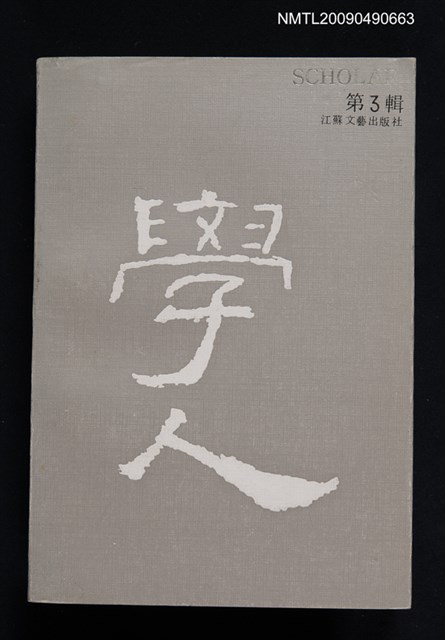 NMTL20090490663
SCHOLAR
第3輯
江蘇文藝出版社
學人